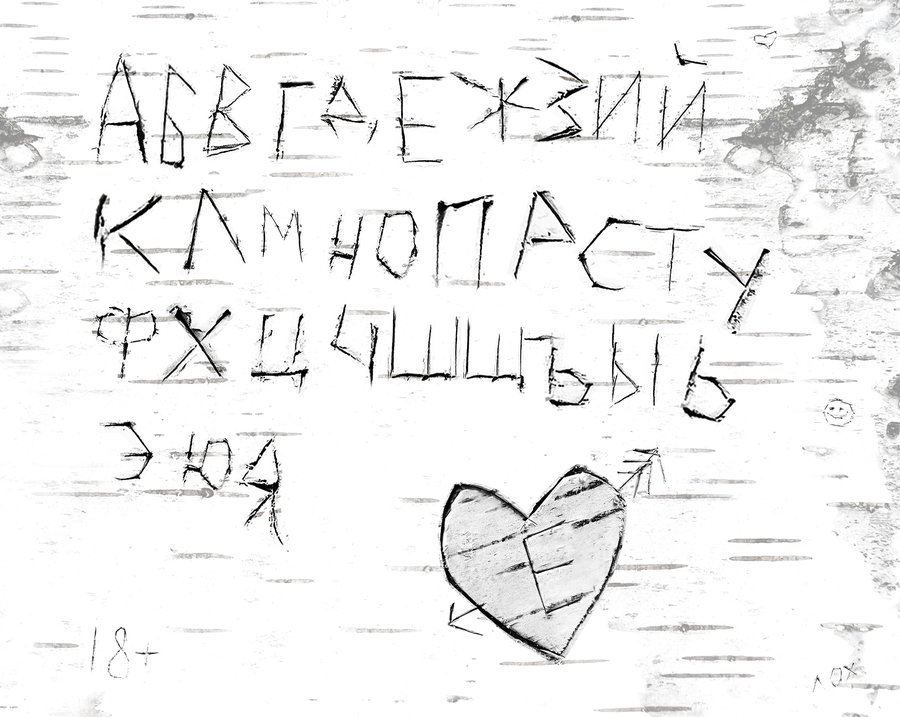 АБВГДЕЖЗИЙ
КЛМНОПРСТУ
ФХЦЧШЩЪЫЬ
ЭЮЯ
Е
18+
лох